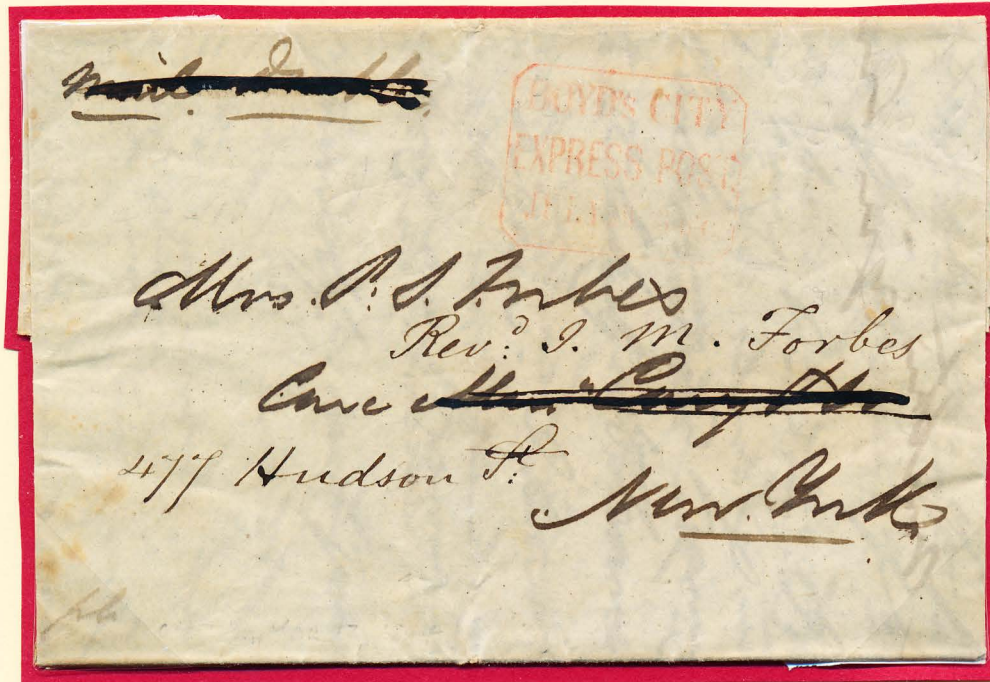 BOYD's CITY
EXPRESS POST
Mrs. P. S. Forbes
Revd. J. M. Forbes
Care
477 Hudson St.
New York